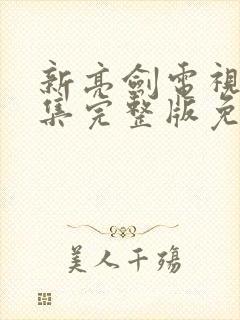 新亮劍電視
集完整版免
美人千殤